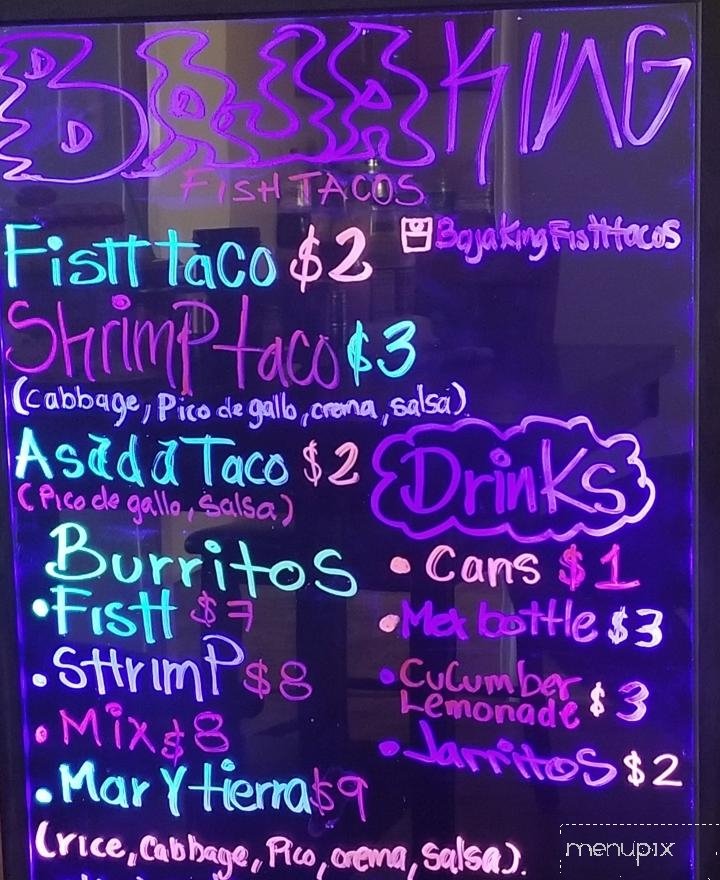 BAJA KING
FISH TACOS
BajaKingFisHtacos
FisH taco $2
ShrimP taco $3
(cabbage, Pico de gallo, crema, salsa)
Asada Taco $2
(Pico de gallo, Salsa)
Drinks
• Cans $1
• Mex bottle $3
• Cucumber
Lemonade $3
• Jarritos $2
Burritos
• FisH $7
• SHrimP $8
• Mix $8
• Mar Y tierra $9
(rice, Cabbage, Pico, crema, Salsa).
menupix